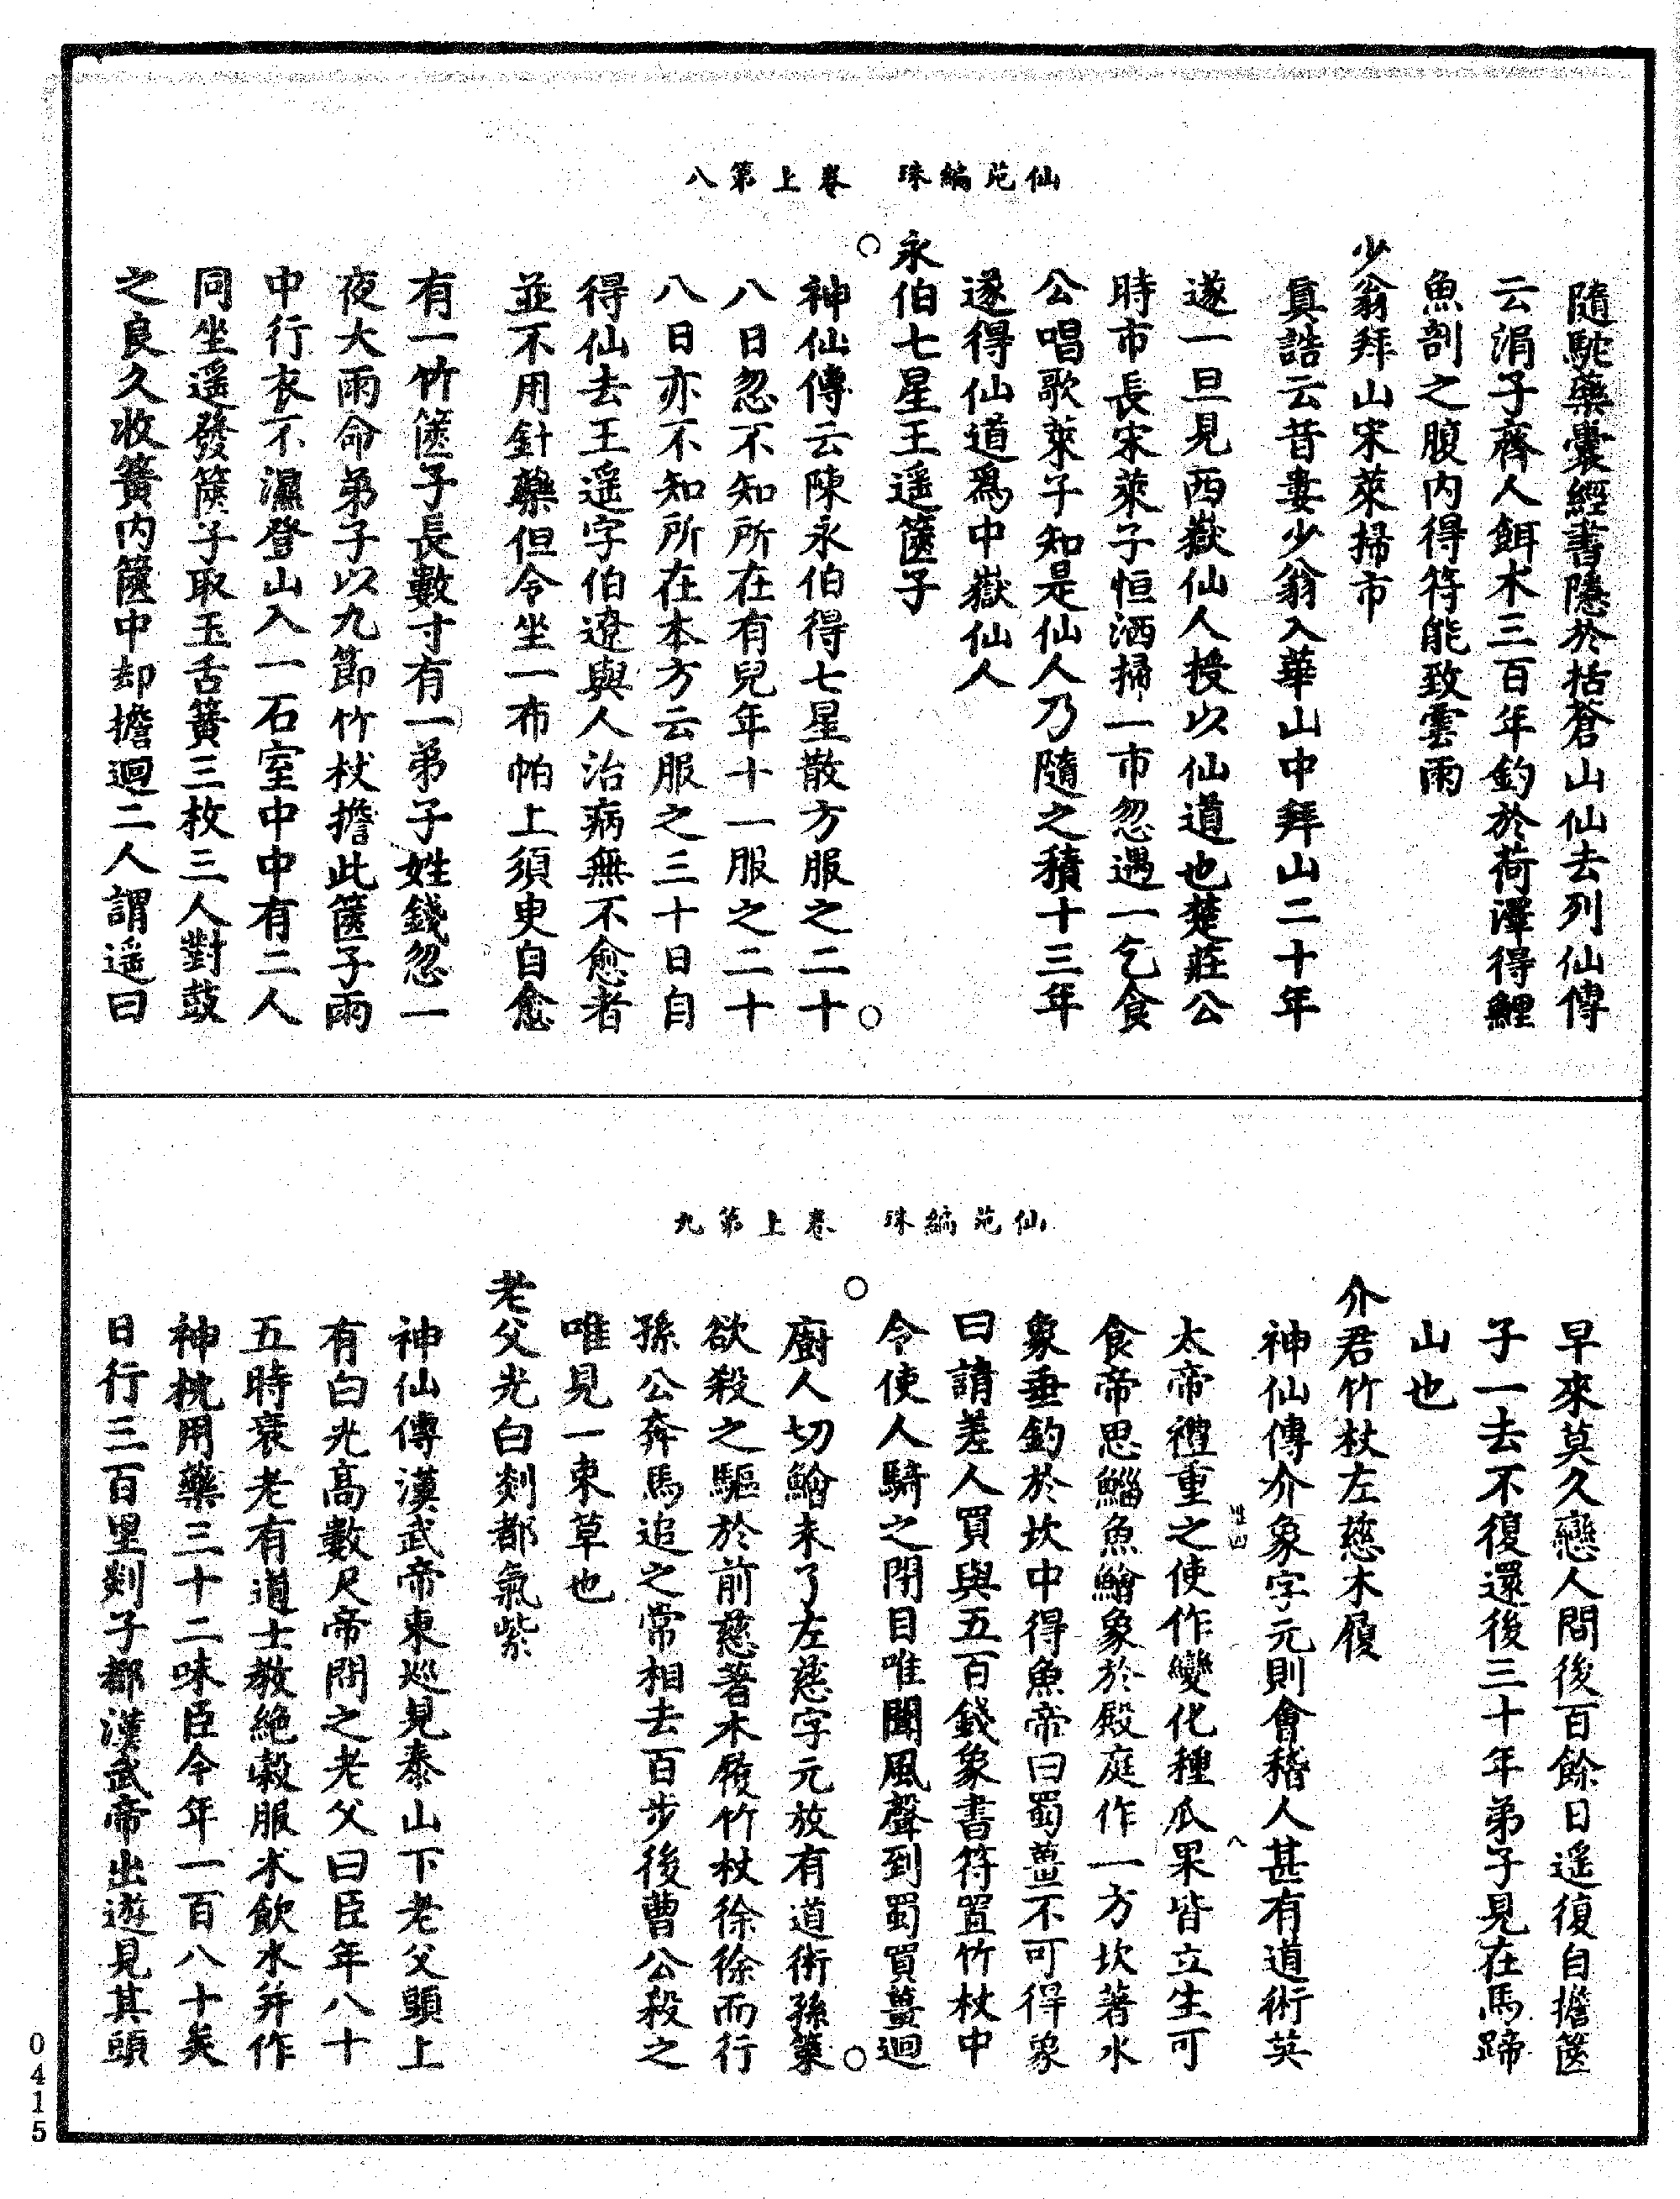 仙苑編珠　卷上第八
隨駝藥囊經書隱於括蒼山仙去列仙傳
云涓子齊人餌木三百年釣於荷澤得鯉
魚剖之腹内得符能致雲雨
少翁拜山宋萊掃市
眞誥云昔妻少翁入華山中拜山二十年
遂一旦見西嶽仙人授以仙道也楚莊公
時市長宋萊子恒洒掃一市忽遇一乞食
公唱歌萊子知是仙人乃隨之積十三年
遂得仙道爲中嶽仙人
永伯七星王遥篋子
神仙傳云陳永伯得七星散方服之二十
八日忽不知所在有兒年十一服之二十
八日亦不知所在本方云服之三十日自
得仙去王遥字伯遼與人治病無不愈者
並不用針藥但令坐一布帕上須臾自愈
有一竹篋子長數寸有一弟子姓錢忽一
夜大雨命弟子以九節竹杖擔此篋子雨
中行衣不濕登山入一石室中中有二人
同坐遥發篋子取玉舌簧三枚三人對鼓
之良久收簧内篋中却擔迴二人謂遥曰
仙苑編珠　卷上第九
早來莫久戀人間後百餘日遥復自擔篋
子一去不復還後三十年弟子見在馬蹄
山也
介君竹杖左慈木履
神仙傳介象字元則會稽人甚有道術英
太帝禮重之使作變化種瓜果皆立生可
食帝思鯔魚鱠象於殿庭作一方坎著水
象垂釣於坎中得魚帝曰蜀薑不可得象
曰請差人買與五百錢象書符置竹杖中
令使人騎之閉目唯聞風聲到蜀買薑迴
廚人切鱠未了左慈字元放有道術孫策
欲殺之驅於前慈著木履竹杖徐徐而行
孫公奔馬追之常相去百步後曹公殺之
唯見一束草也
老父光白剡都氣紫
神仙傳漢武帝東巡見泰山下老父頭上
有白光高數尺帝問之老父曰臣年八十
五時衰老有道士教絶穀服朮飲水并作
神枕用藥三十二味臣今年一百八十矣
日行三百里剡子都漢武帝出遊見其頭
0415